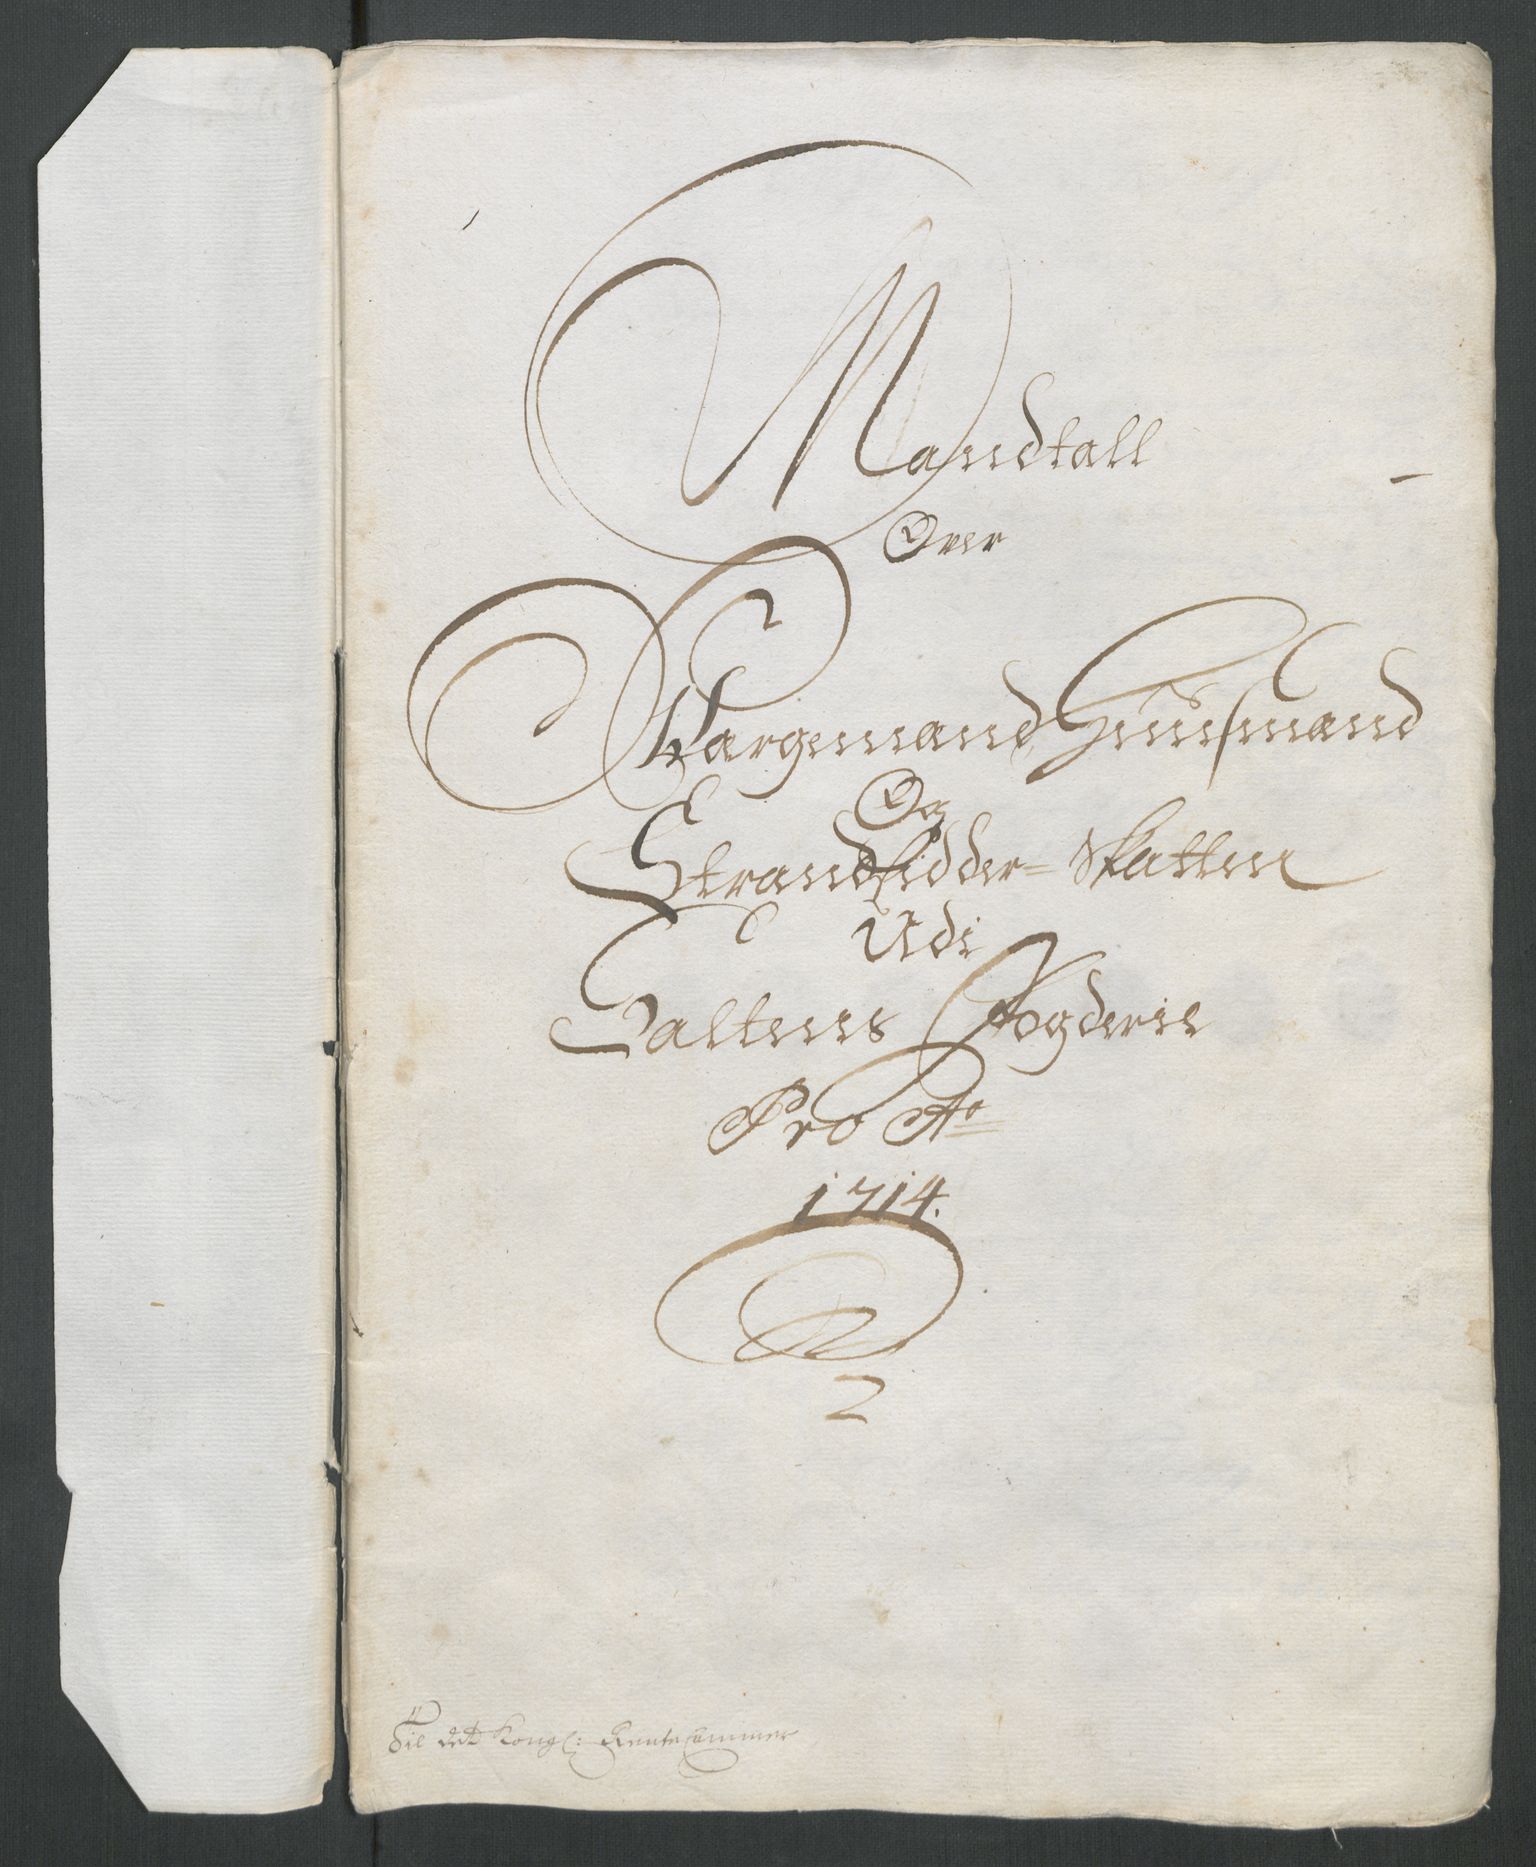 Mandtall
Over
Wargemand Huusmænd
Og
Strandsidder= Skatten
Udi
Saltens Fogderie
Pro Ao
1714.
Til det Kongl: Rentecammer